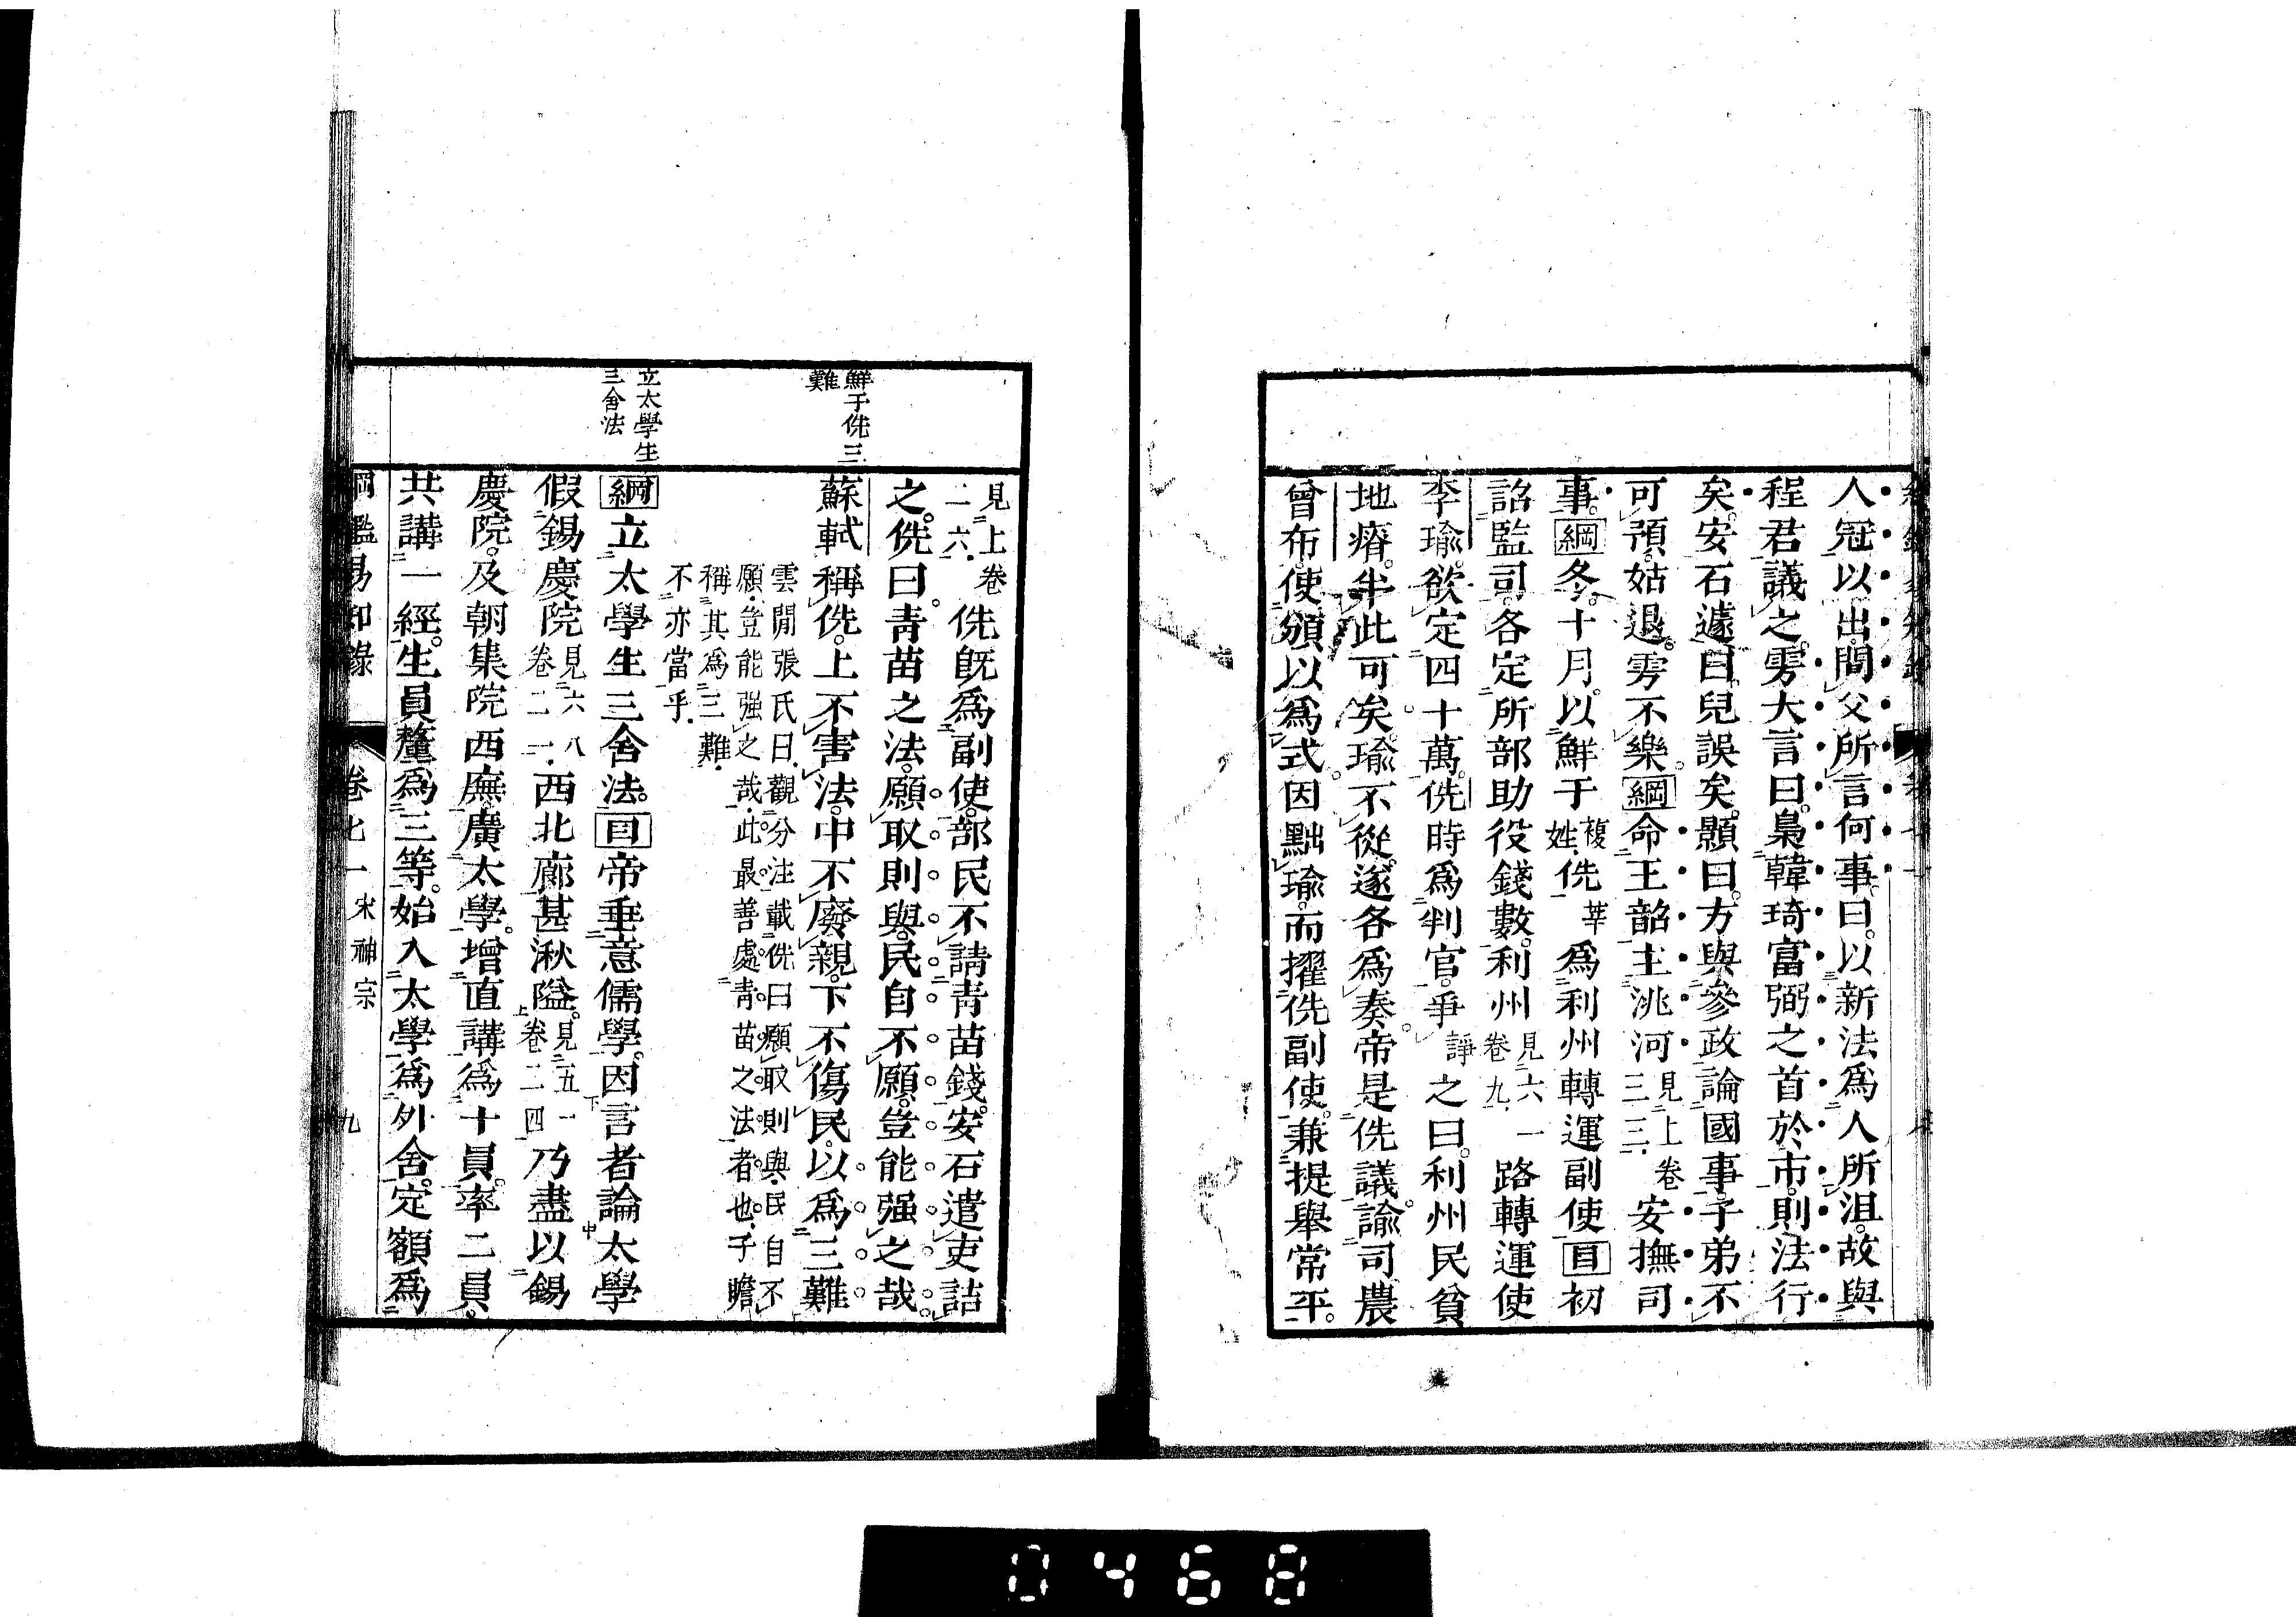 人冠以出問父所言何事曰以新法爲人所沮故與
程君議之雱大言曰梟韓琦富弼之首於市則法行
矣安石遽曰兒誤矣顥曰方與參政論國事子弟不
可預姑退雱不樂綱命王韶主洮河見上卷三三安撫司
事綱冬十月以鮮于複姓侁莘爲利州轉運副使目初
詔監司各定所部助役錢數利州見六一卷九路轉運使
李瑜欲定四十萬侁時爲判官爭諍之曰利州民貧
地瘠半此可矣瑜不從遂各爲奏帝是侁議諭司農
曾布使頒以爲式因黜瑜而擢侁副使兼提舉常平
鮮于侁三
難
立太學生
三舍法
見上卷二六侁旣爲副使部民不請靑苗錢安石遣吏詰
之侁曰靑苗之法願取則與民自不願豈能强之哉
蘇軾稱侁上不害法中不廢親下不傷民以爲三難
雲閒張氏曰觀分注載侁曰願取則與民自不
願豈能强之哉此最善處靑苗之法者也子瞻
稱其爲三難
不亦當乎
綱立太學生三舍法目帝垂意儒學因言者論太學
假錫慶院見六八卷二一西北廊甚湫隘見五一上卷二四乃盡以錫
慶院及朝集院西廡廣太學增直講爲十員率二員
共講一經生員釐爲三等始入太學爲外舍定額爲
綱鑑易知錄 卷七一 宋神宗 九
0468